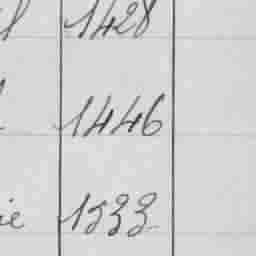 1428
1446
ie 1533